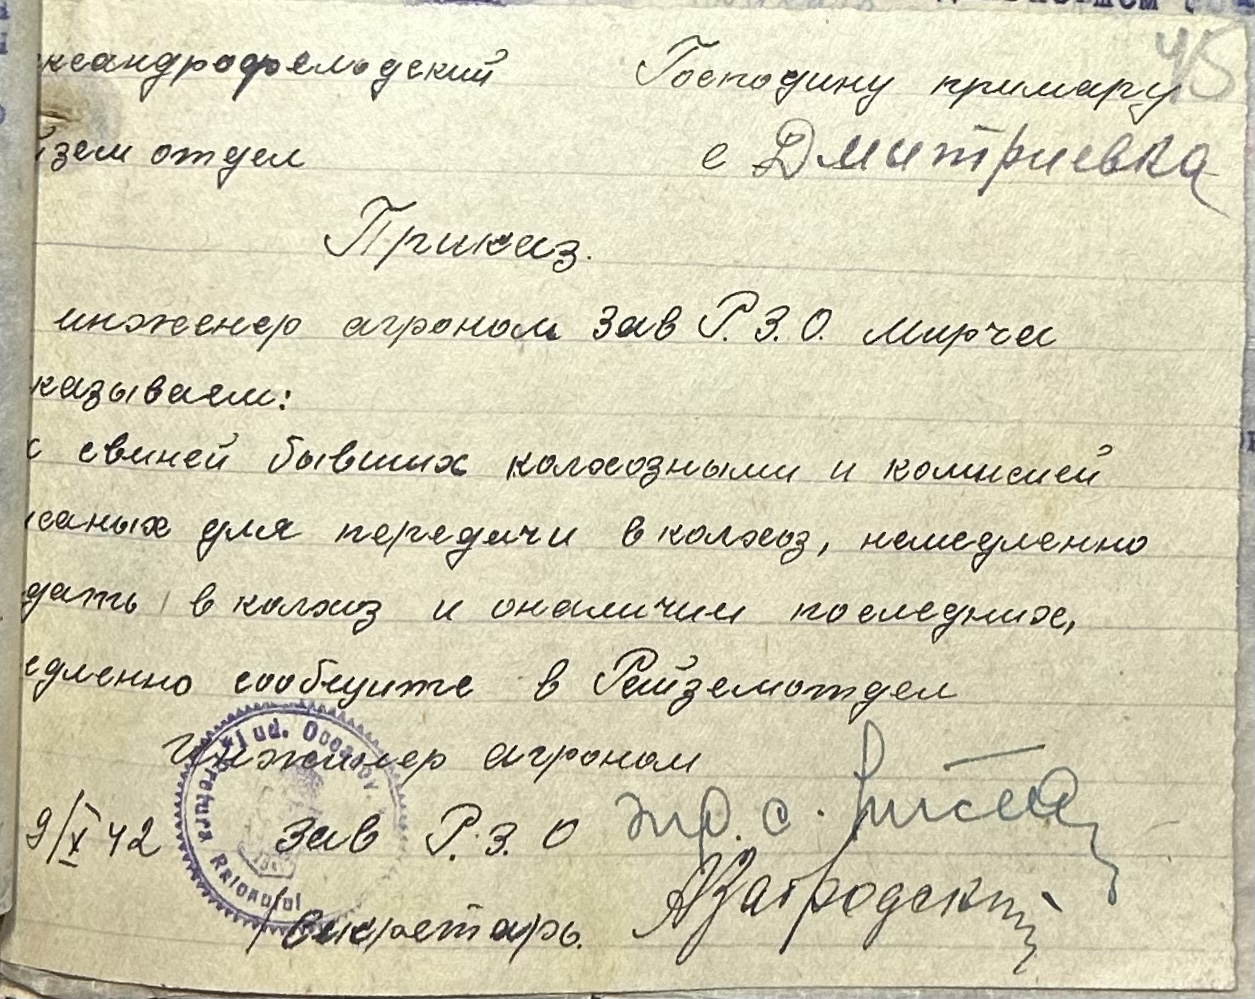 45
ксандрофельдский Господину примару
йзем отдел с Дмитриевка
Приказ.
инженер агроном Зав Р.З.О. Мирча
казываем:
х свиней бывших колхозными и комисией
саных для передачи в колхоз, немедленно
дать в колхоз и оналичии последних,
едленно сообщите в Райземотдел
Инжинер агроном
9/X 42 Зав Р.З.О
Секретарь. АЗагродский
Pretura Raionului jud. Oceacov.